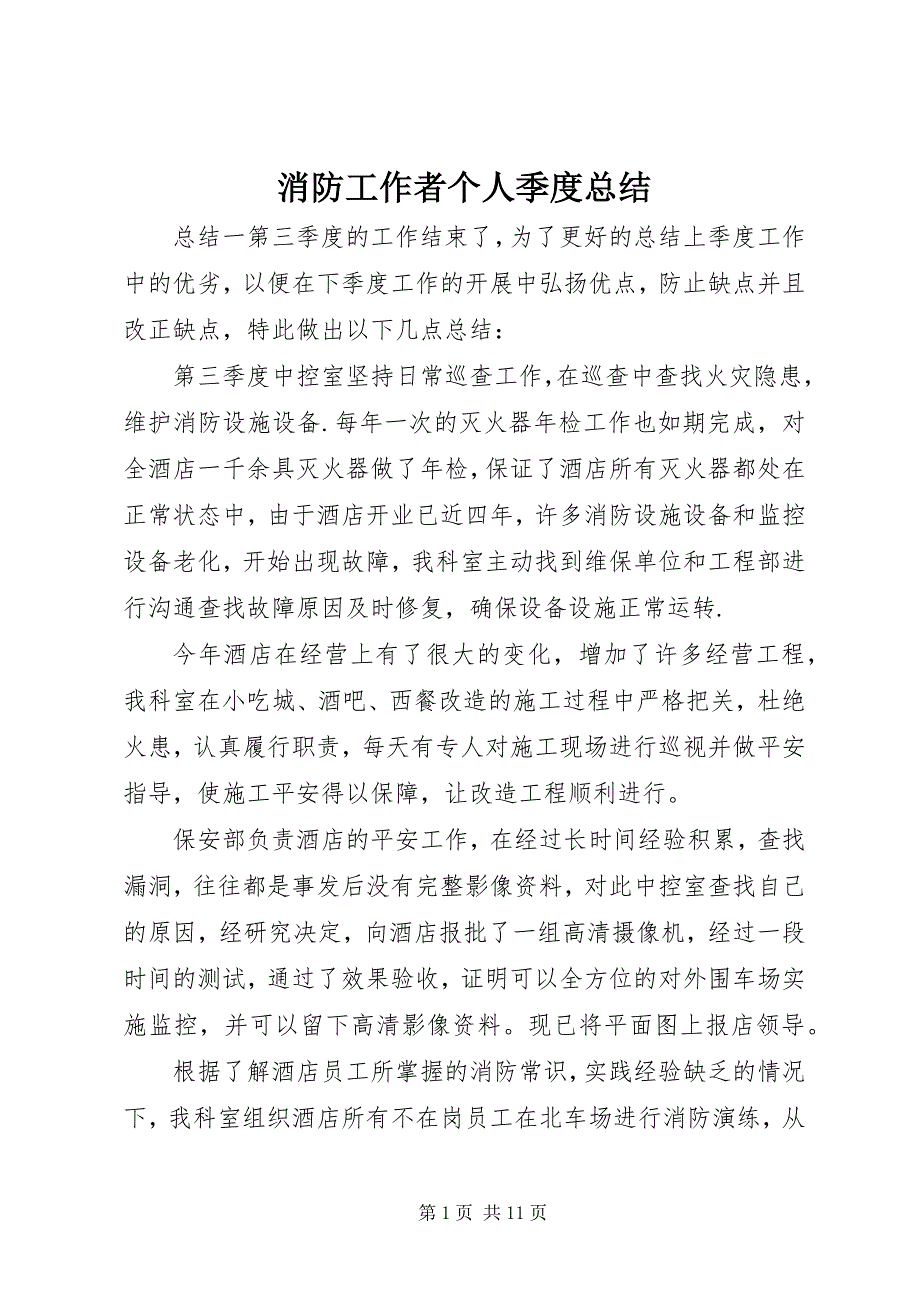 消防工作者个人季度总结
总结一第三季度的工作结束了，为了更好的总结上季度工作
中的优劣，以便在下季度工作的开展中弘扬优点，防止缺点并且
改正缺点，特此做出以下几点总结：
第三季度中控室坚持日常巡查工作，在巡查中查找火灾隐患，
维护消防设施设备.每年一次的灭火器年检工作也如期完成，对
全酒店一千余具灭火器做了年检，保证了酒店所有灭火器都处在
正常状态中，由于酒店开业已近四年，许多消防设施设备和监控
设备老化，开始出现故障，我科室主动找到维保单位和工程部进
行沟通查找故障原因及时修复，确保设备设施正常运转.
今年酒店在经营上有了很大的变化，增加了许多经营工程，
我科室在小吃城、酒吧、西餐改造的施工过程中严格把关，杜绝
火患，认真履行职责，每天有专人对施工现场进行巡视并做平安
指导，使施工平安得以保障，让改造工程顺利进行。
保安部负责酒店的平安工作，在经过长时间经验积累，查找
漏洞，往往都是事发后没有完整影像资料，对此中控室查找自己
的原因，经研究决定，向酒店报批了一组高清摄像机，经过一段
时间的测试，通过了效果验收，证明可以全方位的对外围车场实
施监控，并可以留下高清影像资料。现已将平面图上报店领导。
根据了解酒店员工所掌握的消防常识，实践经验缺乏的情况
下，我科室组织酒店所有不在岗员工在北车场进行消防演练，从
第 1 页 共 11 页